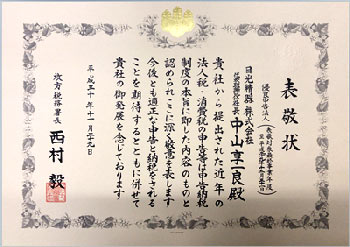 表敬状
優良申告法人
日光精器株式会社
代表取締役社長 中山享一良殿
貴社から提出された近年の
法人税・消費税の申告等は申告納税
制度の本旨に即した内容のものと
認められここに深く敬意を表します
今後とも適正な申告と納税をされる
ことを期待するとともに併せて
貴社の御発展を念じております
平成三十年十一月二十九日
枚方税務署長
西村 毅